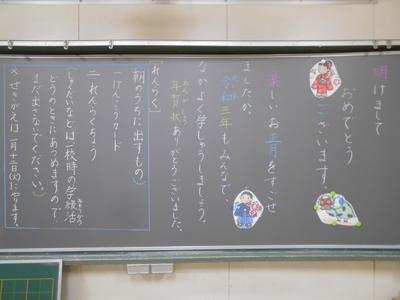 明けまして
おめでとう
ございます。
楽しいお正月をすごせ
ましたか。
令和三年もみんなで、
なかよく学しゅうしましょう。
年賀状ありがとうございました。
ねんがじょう
【れんらく】
朝のうちに出すもの
一けんこうカード
二れんらくちょう
しゅくだいなどは一校時の学級活
どうのときにあつめますので、
まだ出さないでください。
※せきがえは一月十二日(火)にやります。